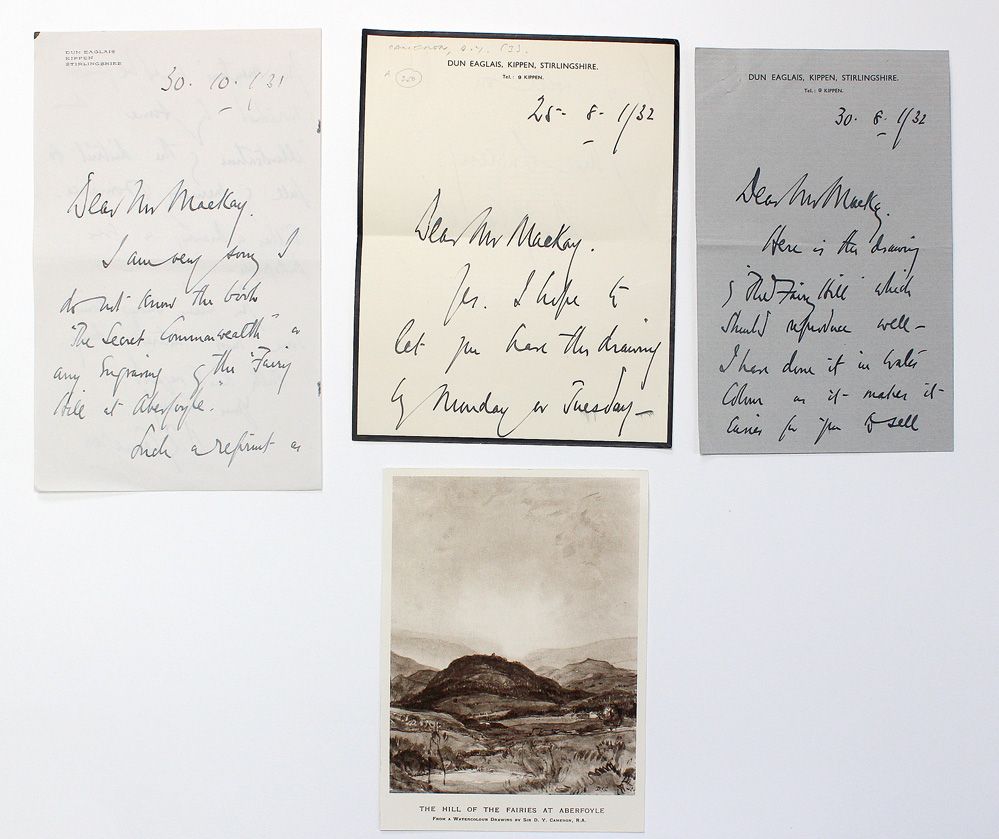 DUN EAGLAIS
KIPPEN
STIRLINGSHIRE
30. 10. 1/31
Dear Mr MacKay.
I am very sorry I
do not know the book
"The Secret Commonwealth" or
any Engraving of the "Fairy
Hill at Aberfoyle."
Such a reprint as
CAMERON, D.Y.
DUN EAGLAIS, KIPPEN, STIRLINGSHIRE.
Tel.: 9 KIPPEN.
25- 8- 1/32
Dear Mr MacKay.
Yes. I hope to
let you have the drawing
by Monday or Tuesday—
DUN EAGLAIS, KIPPEN, STIRLINGSHIRE.
Tel.: 9 KIPPEN.
30- 8- 1/32
Dear Mr MacKay.
Here is the drawing
of "The Fairy Hill" which
should reproduce well—
I have done it in water
colour as it makes it
easier for you to sell
THE HILL OF THE FAIRIES AT ABERFOYLE
FROM A WATERCOLOUR DRAWING BY SIR D. Y. CAMERON, R.A.